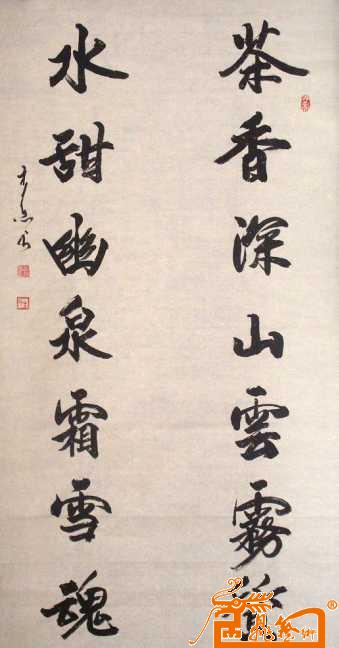 茶香深山雲霧
水甜幽泉霜雪魂